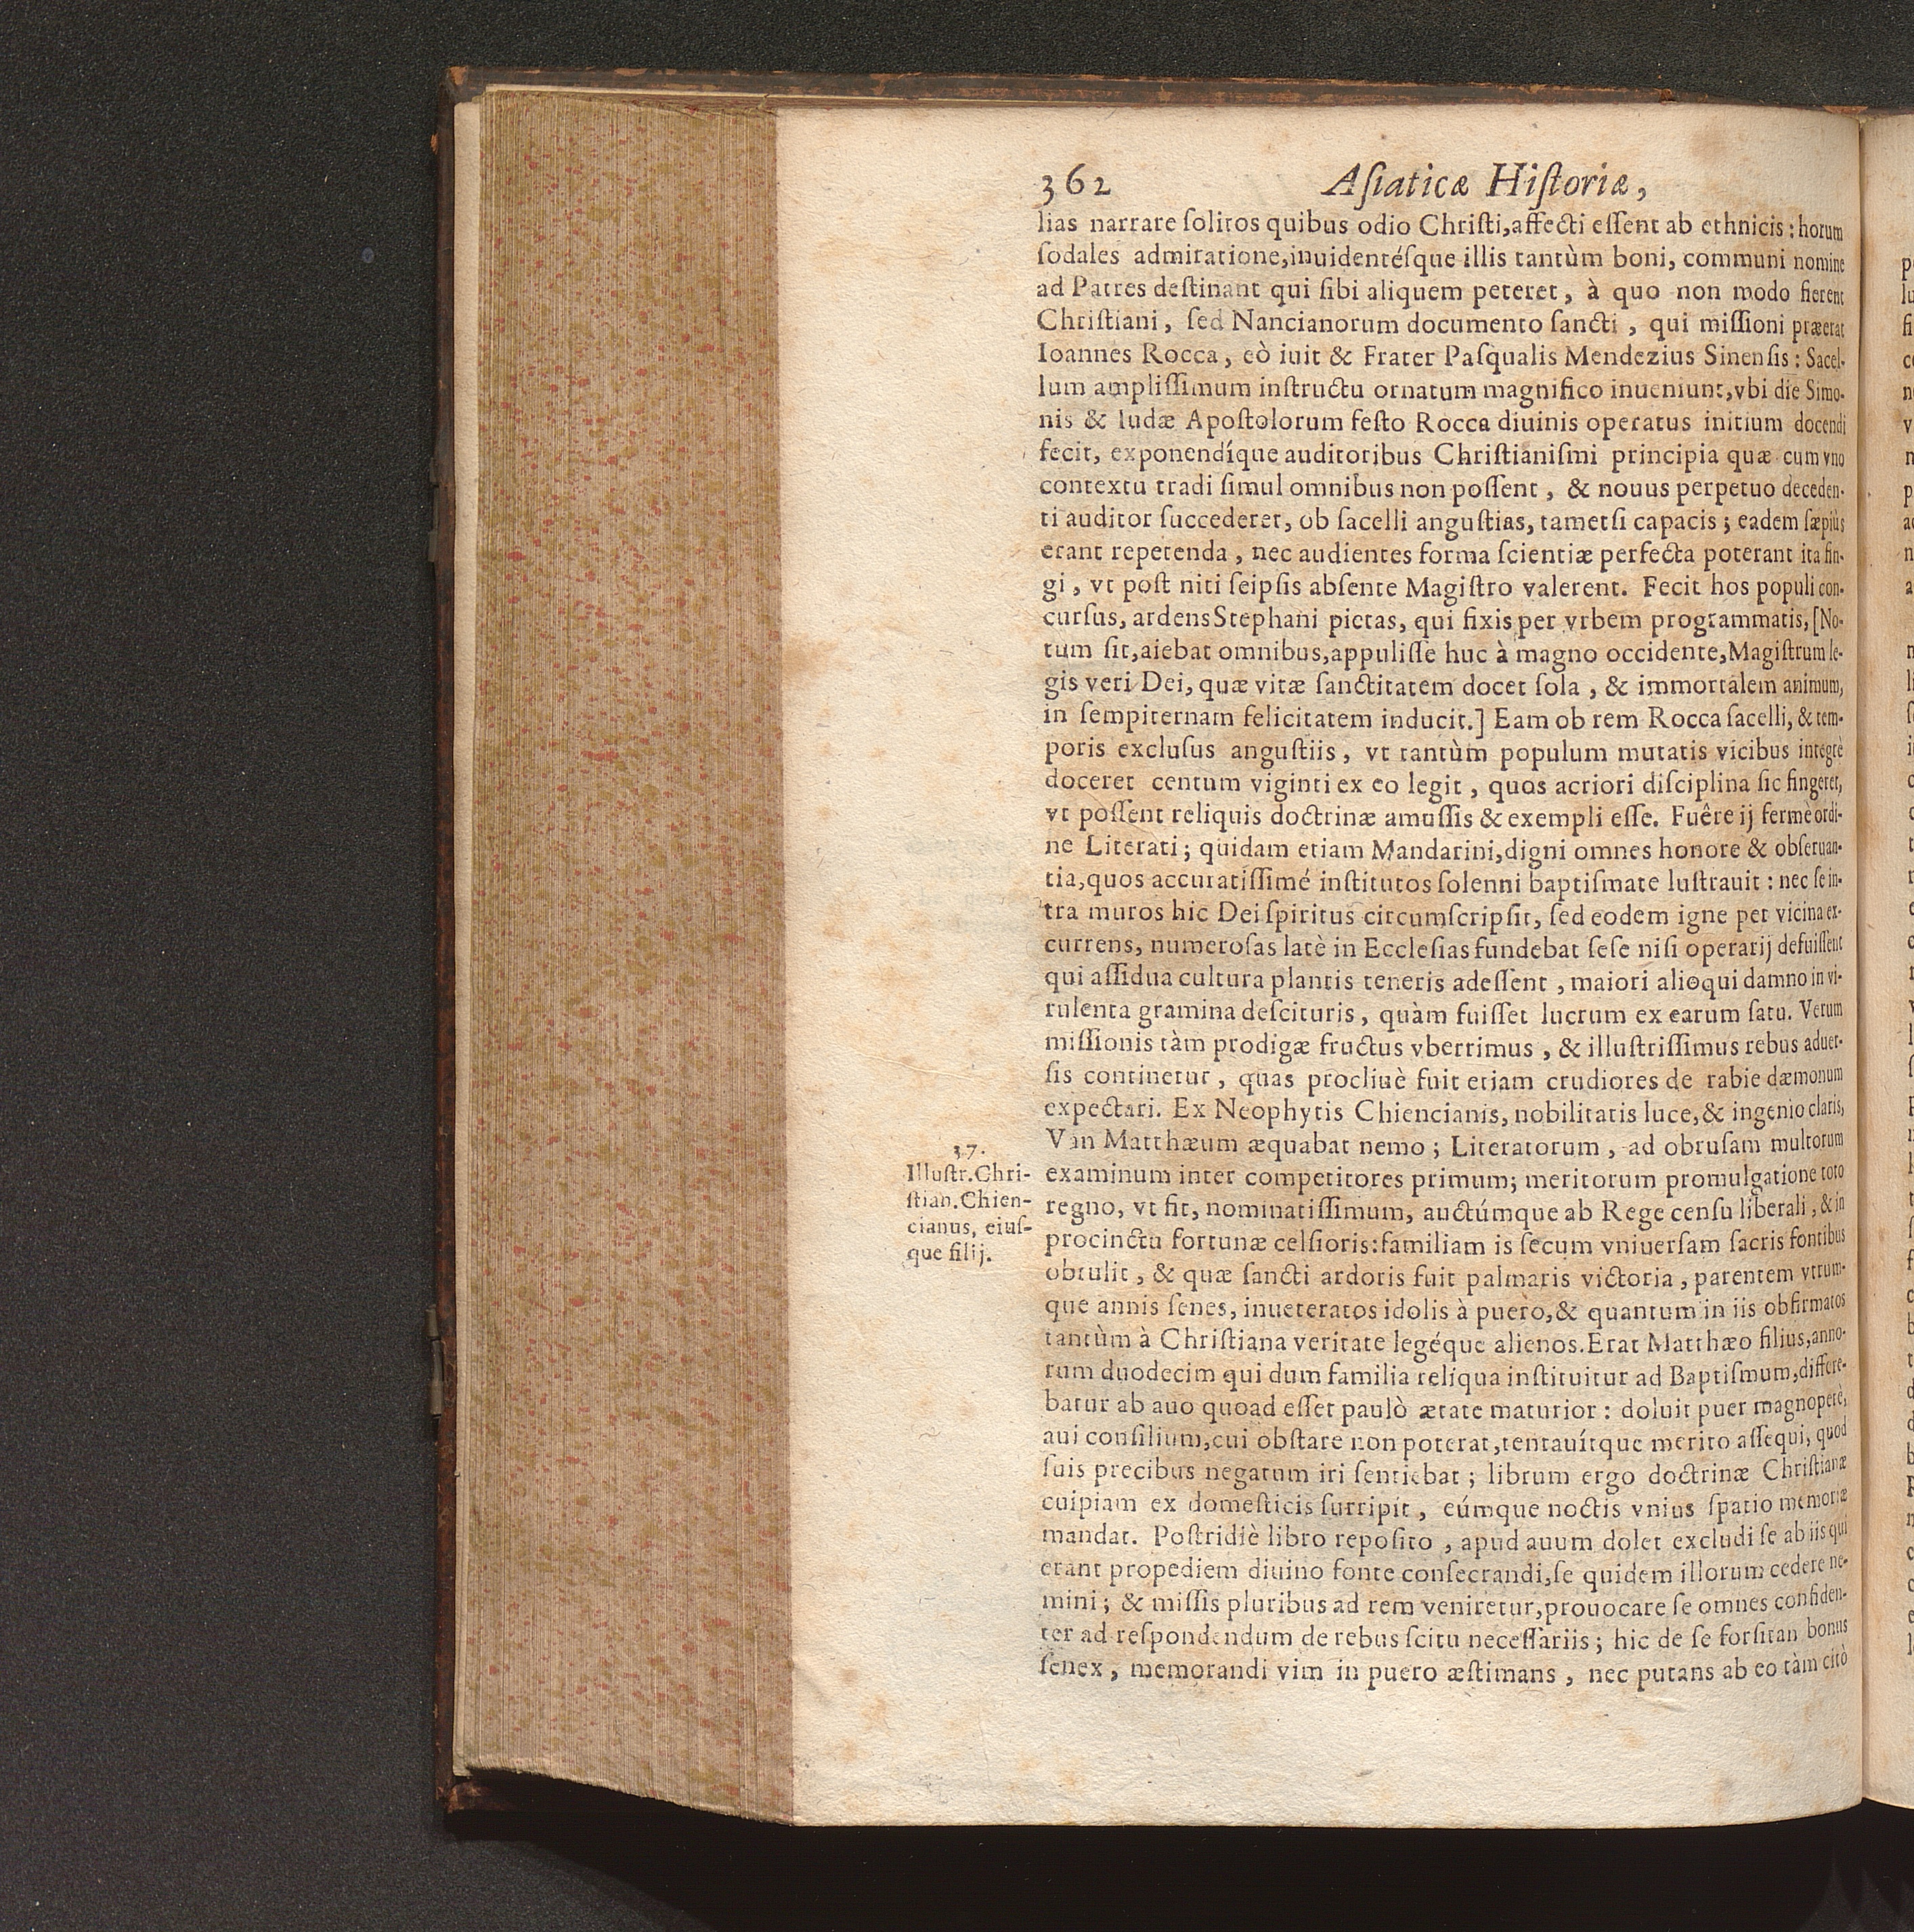 362 Aſiaticæ Hiſtoriæ,
lias narrare ſolitos quibus odio Chriſti,affecti eſſent ab ethnicis : horum
ſodales admiratione,inuidentéſque illis tantùm boni, communi nomine
ad Patres deſtinant qui ſibi aliquem peteret, à quo non modo fierent
Chriſtiani, ſed Nancianorum documento ſancti, qui miſſioni præerat
Ioannes Rocca, eò iuit & Frater Paſqualis Mendezius Sinenſis : Sacel-
lum ampliſſimum inſtructu ornatum magnifico inueniunt,vbi die Simo-
nis & Iudæ Apoſtolorum feſto Rocca diuinis operatus initium docendi
fecit, exponendíque auditoribus Chriſtianiſmi principia quæ cum vno
contextu tradi ſimul omnibus non poſſent, & nouus perpetuo deceden-
ti auditor ſuccederet, ob ſacelli anguſtias, tametſi capacis ; eadem ſæpiùs
erant repetenda, nec audientes forma ſcientiæ perfecta poterant ita fin-
gi, vt poſt niti ſeipſis abſente Magiſtro valerent. Fecit hos populi con-
curſus, ardens Stephani pietas, qui fixis per vrbem programmatis, [No-
tum ſit,aiebat omnibus,appuliſſe huc à magno occidente,Magiſtrum le-
gis veri Dei, quæ vitæ ſanctitatem docet ſola, & immortalem animum,
in ſempiternam felicitatem inducit.] Eam ob rem Rocca ſacelli, & tem-
poris excluſus anguſtiis, vt tantùm populum mutatis vicibus integrè
doceret centum viginti ex eo legit, quos acriori diſciplina ſic fingeret,
vt poſſent reliquis doctrinæ amuſſis & exempli eſſe. Fuêre ij fermè ordi-
ne Literati ; quidam etiam Mandarini,digni omnes honore & obſeruan-
tia,quos accuratiſſimé inſtitutos ſolenni baptiſmate luſtrauit : nec ſe in-
tra muros hic Dei ſpiritus circumſcripſit, ſed eodem igne per vicina ex-
currens, numeroſas latè in Eccleſias fundebat ſeſe niſi operarij defuiſſent
qui aſſidua cultura plantis teneris adeſſent, maiori alioqui damno in vi-
rulenta gramina deſcituris, quàm fuiſſet lucrum ex earum ſatu. Verum
miſſionis tàm prodigæ fructus vberrimus, & illuſtriſſimus rebus aduer-
ſis continetur, quas procliuè fuit etiam crudiores de rabie dæmonum
expectari. Ex Neophytis Chiencianis, nobilitatis luce, & ingenio claris,
Van Matthæum æquabat nemo ; Literatorum, ad obruſam multorum
examinum inter competitores primum; meritorum promulgatione toto
regno, vt fit, nominatiſſimum, auctúmque ab Rege cenſu liberali, & in
procinctu fortunæ celſioris:familiam is ſecum vniuerſam ſacris fontibus
obtulit, & quæ ſancti ardoris fuit palmaris victoria, parentem vtrum-
que annis ſenes, inueteratos idolis à puero,& quantum in iis obfirmatos
tantùm à Chriſtiana veritate legéque alienos.Erat Matthæo filius,anno-
rum duodecim qui dum familia reliqua inſtituitur ad Baptiſmum,differe-
batur ab auo quoad eſſet paulò ætate maturior : doluit puer magnoperè,
aui conſilium,cui obſtare non poterat,tentauítque merito aſſequi, quod
ſuis precibus negatum iri ſentiebat ; librum ergo doctrinæ Chriſtianæ
cuipiam ex domeſticis ſurripit, eúmque noctis vnius ſpatio memoriæ
mandat. Poſtridiè libro repoſito, apud auum dolet excludi ſe ab iis qui
erant propediem diuino fonte conſecrandi,ſe quidem illorum cedere ne-
mini ; & miſſis pluribus ad rem veniretur,prouocare ſe omnes confiden-
ter ad reſpondendum de rebus ſcitu neceſſariis ; hic de ſe forſitan bonus
ſenex, memorandi vim in puero æſtimans, nec putans ab eo tàm citò
37.
Illuſtr.Chri-
ſtian.Chien-
cianus, eiuſ-
que filij.